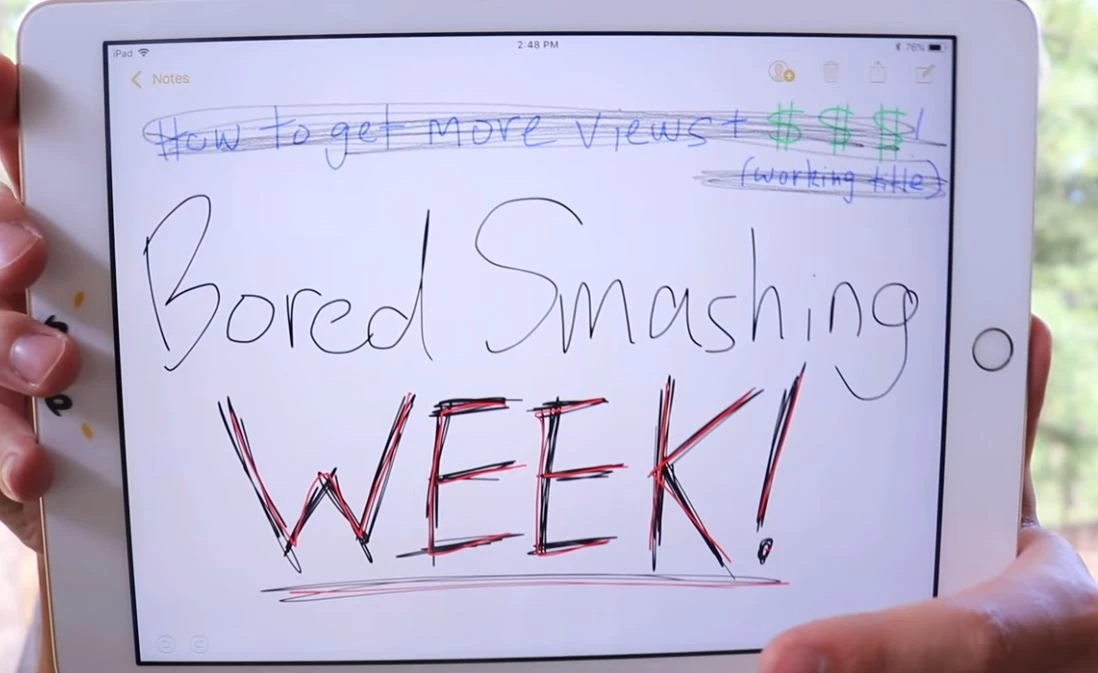 iPad 2:48 PM 76%
Notes
How to get more views + $ $ $!
(working title)
Bored Smashing
WEEK!